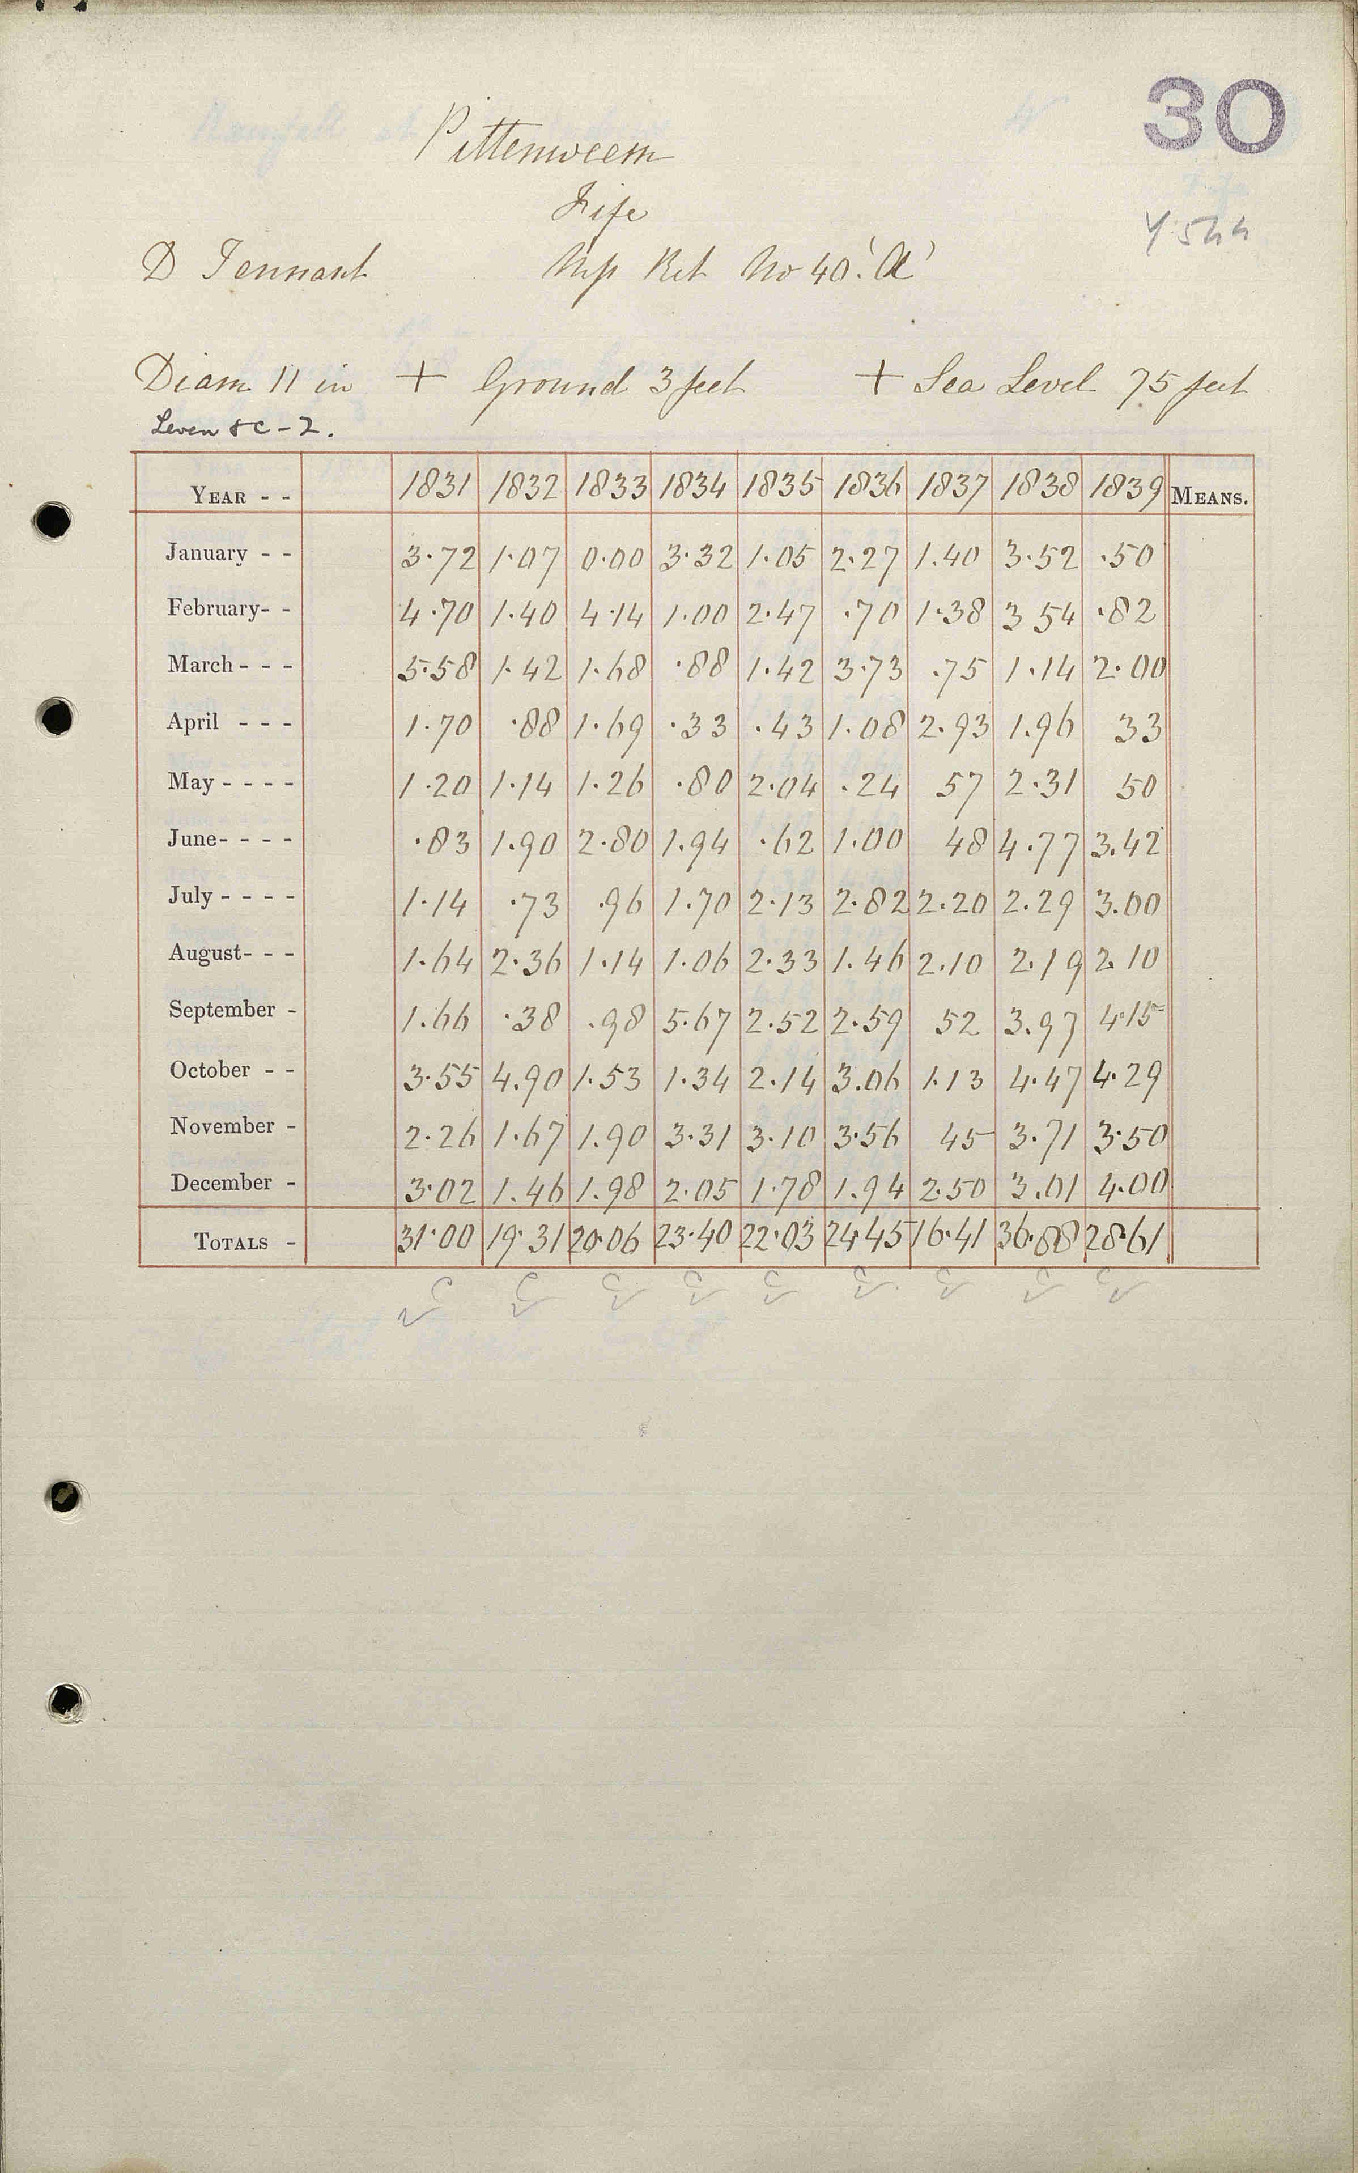 30
Pittenweem
Fife
D Tennant Mp Ret No 40 'A'
Diam 11 in + Ground 3 feet + Sea Level 75 feet
Leven &c - 2.
YEAR - - 1831 1832 1833 1834 1835 1836 1837 1838 1839 MEANS.
January - - 3.72 1.07 0.00 3.32 1.05 2.27 1.40 3.52 .50
February- - 4.70 1.40 4.14 1.00 2.47 .70 1.38 3 54 .82
March - - - 5.58 1.42 1.68 .88 1.42 3.73 .75 1.14 2.00
April - - - 1.70 .88 1.69 .33 .43 1.08 2.93 1.96 33
May - - - - 1.20 1.14 1.26 .80 2.04 .24 57 2.31 50
June- - - - .83 1.90 2.80 1.94 .62 1.00 48 4.77 3.42
July - - - - 1.14 .73 .96 1.70 2.13 2.82 2.20 2.29 3.00
August- - - 1.64 2.36 1.14 1.06 2.33 1.46 2.10 2.19 2.10
September - 1.66 .38 .98 5.67 2.52 2.59 52 3.97 4.15
October - - 3.55 4.90 1.53 1.34 2.14 3.06 1.13 4.47 4.29
November - 2.26 1.67 1.90 3.31 3.10 3.56 45 3.71 3.50
December - 3.02 1.46 1.98 2.05 1.78 1.94 2.50 3.01 4.00
TOTALS - 31.00 19.31 20.06 23.40 22.03 24 45 16.41 36.88 28.61